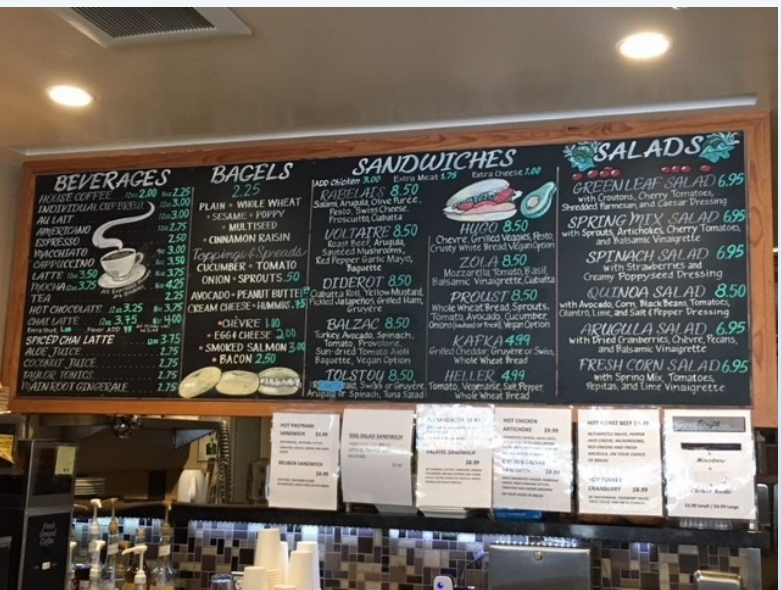 BEVERAGES
HOUSE COFFEE 12oz 2.00 16oz 2.25
INDIVIDUAL CUP BREW 12oz 3.00
AU LAIT 12oz 3.00
AMERICANO 12oz 2.75
ESPRESSO 2.50
MACCHIATO 4oz 3.00
CAPPUCCINO 8oz 3.50
LATTE 12oz 3.50 16oz 3.75
MOCHA 12oz 3.75 16oz 4.25
TEA 2.25
HOT CHOCOLATE 12oz 3.25 16oz 3.75
CHAI LATTE 12oz 3.75 16oz 4.00
Extra Shot 1.00
SPICED CHAI LATTE 12oz 3.75
2.75
COCONUT JUICE 2.75
TAYLOR TONICS 2.75
MAIN ROOT GINGERALE 2.75
BAGELS
2.25
PLAIN • WHOLE WHEAT
• SESAME • POPPY
• MULTISEED
• CINNAMON RAISIN
Toppings & Spreads
CUCUMBER • TOMATO
ONION • SPROUTS .50
AVOCADO • PEANUT BUTTER
CREAM CHEESE • HUMMUS .95
• CHÈVRE 1.00
• EGG & CHEESE 2.00
• SMOKED SALMON 3.00
• BACON 2.50
SANDWICHES
ADD Chicken 3.00 Extra Meat 1.75 Extra Cheese 1.00
RABELAIS 8.50
Salami, Arugula, Olive Purée,
Pesto, Swiss Cheese,
Prosciutto, Ciabatta
VOLTAIRE 8.50
Roast Beef, Arugula,
Sautéed Mushrooms,
Red Pepper Garlic Mayo,
Baguette
DIDEROT 8.50
Ciabatta Roll, Yellow Mustard,
Pickled Jalapeños, Grilled Ham,
Gruyère
BALZAC 8.50
Turkey, Avocado, Spinach,
Tomato, Provolone,
Sun-dried Tomato Aioli
Baguette, Vegan Option
TOLSTOY 8.50
Bread, Swiss or Gruyère,
Arugula or Spinach, Tuna Salad
HUGO 8.50
Chèvre, Grilled Veggies, Pesto,
Crusty White Bread, Vegan Option
ZOLA 8.50
Mozzarella, Tomato, Basil,
Balsamic Vinaigrette, Ciabatta
PROUST 8.50
Whole Wheat Bread, Sprouts,
Tomato, Avocado, Cucumber,
Onions (sautéed or fresh), Vegan Option
KAFKA 4.99
Grilled Cheddar, Gruyère or Swiss,
Whole Wheat Bread
HELLER 4.99
Tomato, Vegenaise, Salt, Pepper,
Whole Wheat Bread
SALADS
GREEN LEAF SALAD 6.95
with Croutons, Cherry Tomatoes,
Shredded Parmesan, and Caesar Dressing
SPRING MIX SALAD 6.95
with Sprouts, Artichokes, Cherry Tomatoes,
and Balsamic Vinaigrette
SPINACH SALAD 6.95
with Strawberries and
Creamy Poppyseed Dressing
QUINOA SALAD 8.50
with Avocado, Corn, Black Beans, Tomatoes,
Cilantro, Lime, and Salt & Pepper Dressing
ARUGULA SALAD 6.95
with Dried Cranberries, Chèvre, Pecans,
and Balsamic Vinaigrette
FRESH CORN SALAD 6.95
with Spring Mix, Tomatoes,
Pepitas, and Lime Vinaigrette
HOT PASTRAMI
SANDWICH
REUBEN SANDWICH
EGG SALAD SANDWICH
FALAFEL SANDWICH
$8.99
HOT CHICKEN
ARTICHOKE $9.99
HOT ROAST BEEF
HOT TURKEY
CRANBERRY $8.99
Fresh
Ground
Coffee